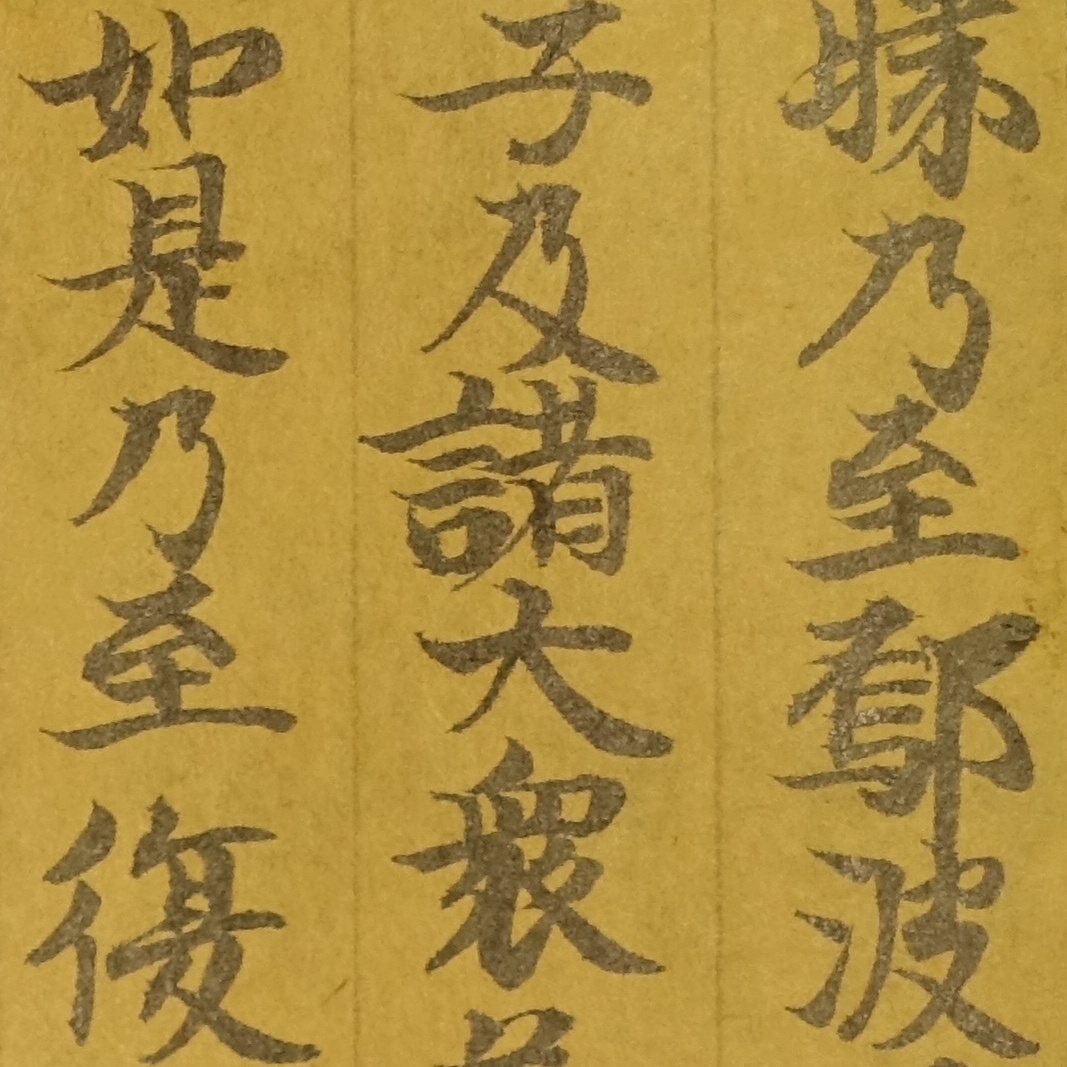 乃至鄔波
子及諸大衆
如是乃至復